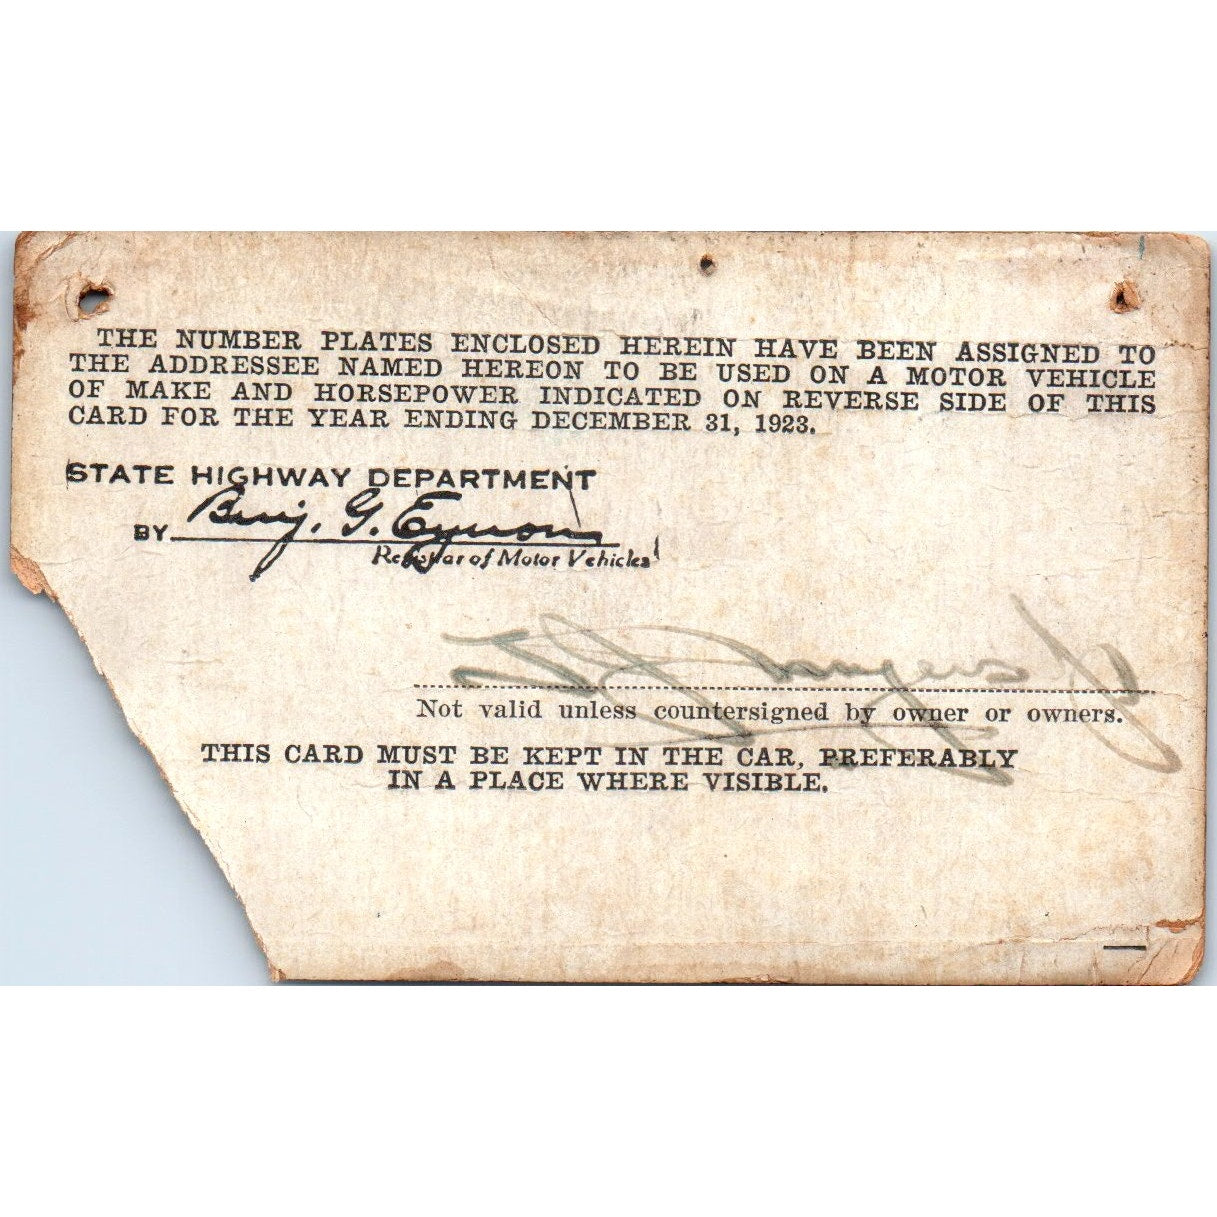 THE NUMBER PLATES ENCLOSED HEREIN HAVE BEEN ASSIGNED TO
THE ADDRESSEE NAMED HEREON TO BE USED ON A MOTOR VEHICLE
OF MAKE AND HORSEPOWER INDICATED ON REVERSE SIDE OF THIS
CARD FOR THE YEAR ENDING DECEMBER 31, 1923.
STATE HIGHWAY DEPARTMENT
BY Benj. G. Eynon
Registrar of Motor Vehicles
Not valid unless countersigned by owner or owners.
THIS CARD MUST BE KEPT IN THE CAR, PREFERABLY
IN A PLACE WHERE VISIBLE.